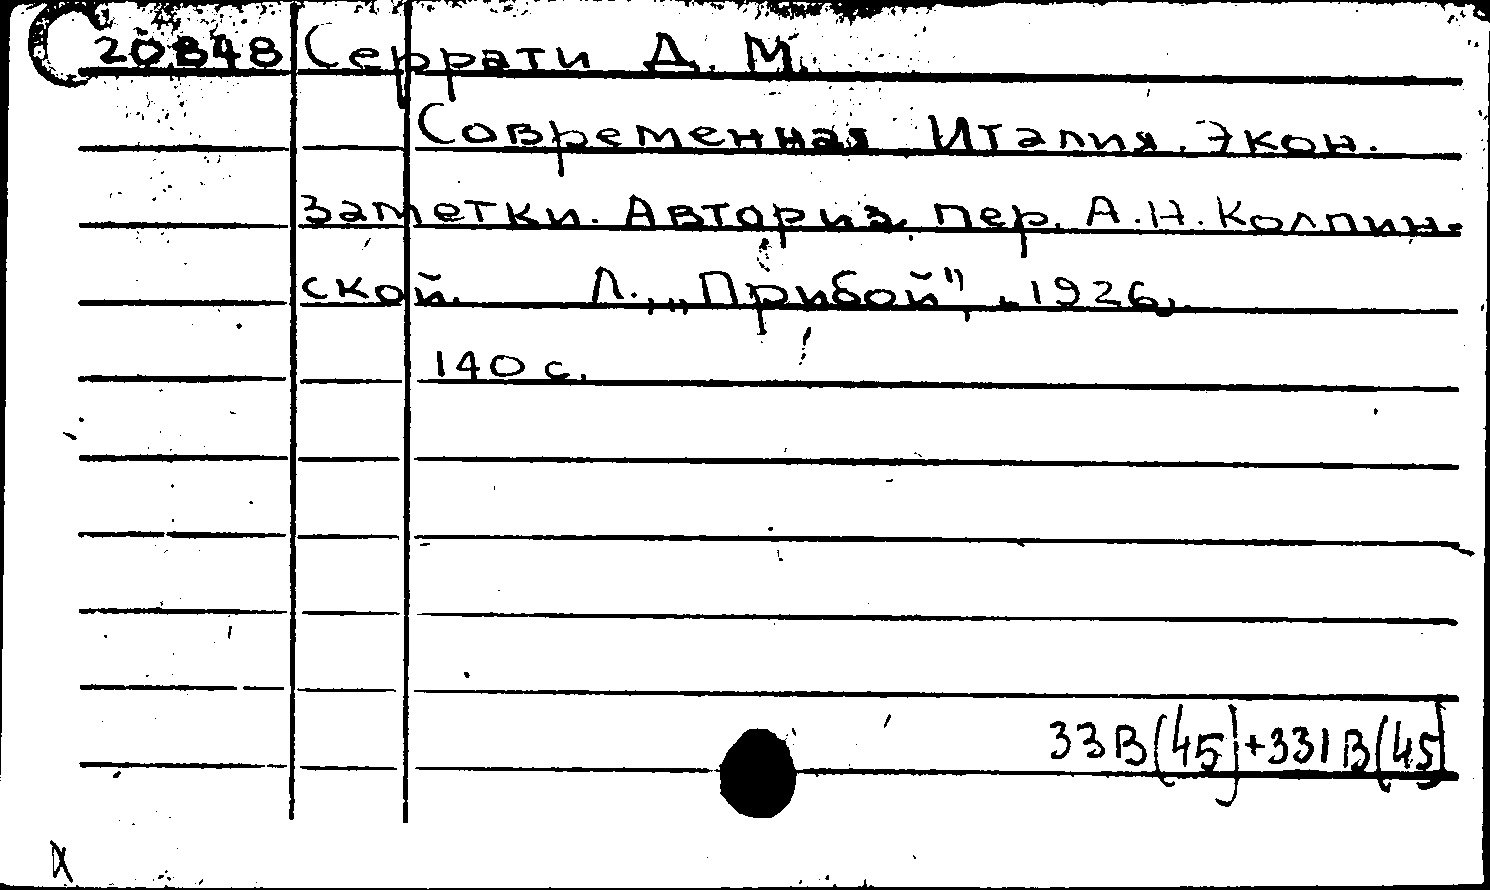 20848 Серрати Д. М.
Современная Италия. Экон.
заметки. Авториз. пер. А.Н.Колпин-
ской. Л., „Прибой", 1926,
140 с.
33В(45)+331В(45)